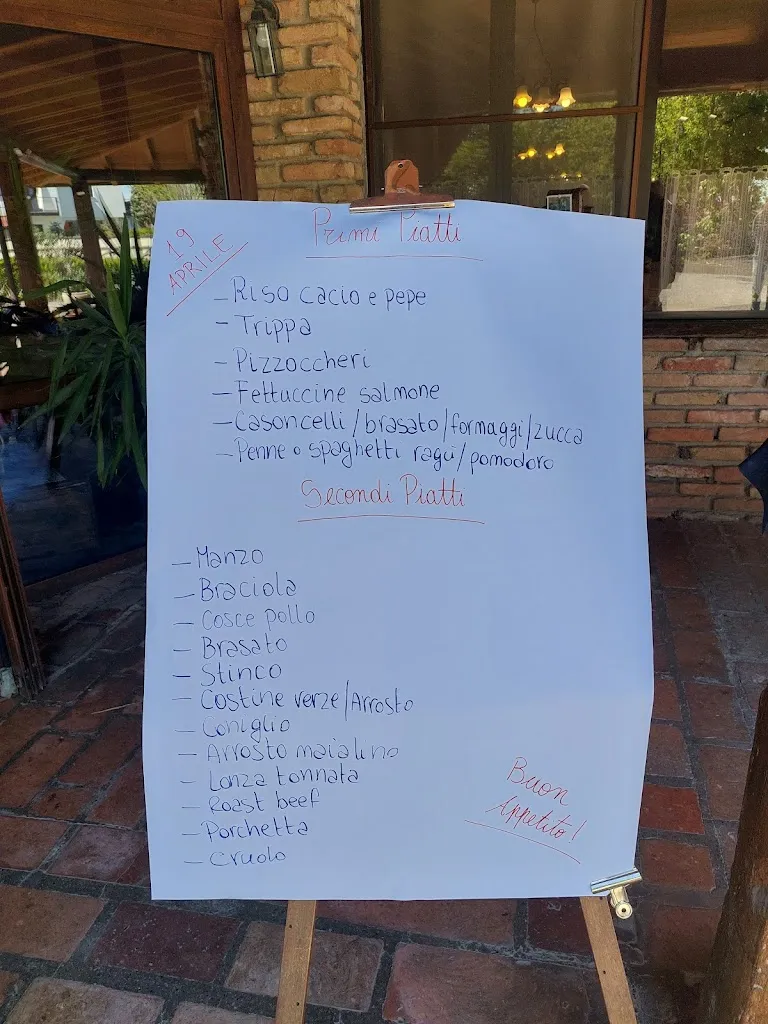 19
APRILE
Primi Piatti
- Riso cacio e pepe
- Trippa
- Pizzoccheri
- Fettuccine salmone
- Casoncelli/brasato/formaggi/zucca
- Penne o spaghetti ragù/pomodoro
Secondi Piatti
- Manzo
- Braciola
- Cosce pollo
- Brasato
- Stinco
- Costine verze/Arrosto
- Coniglio
- Arrosto maialino
- Lonza tonnata
- Roast beef
- Porchetta
- Crudo
Buon
Appetito!